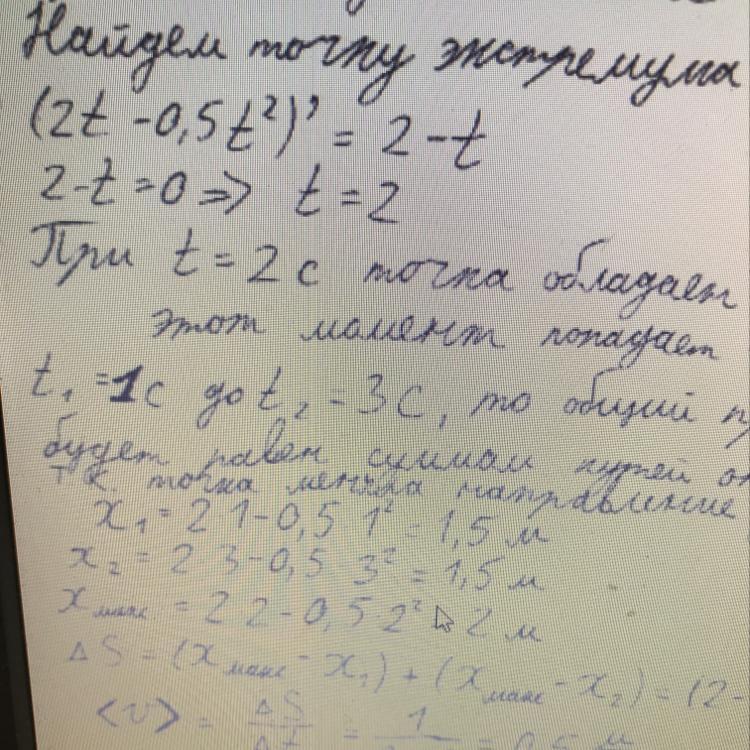 Найдем точку экстремума
(2t - 0,5t²)' = 2 - t
2-t=0 => t=2
При t = 2 с точка обладает
этот момент попадает
t₁ = 1с до t₂ = 3с, то общий п
будет равен суммам путей от
тк точка меняла направление
x₁ = 2 1 - 0,5 1² = 1,5 м
x₂ = 2 3 - 0,5 3² = 1,5 м
xмакс = 2 2 - 0,5 2² 2 м
ΔS = (xмакс - x₁) + (xмакс - x₂) = (2-
<v> = ΔS = 1 = 0,5 м